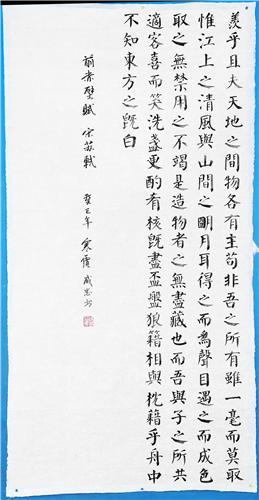 羨乎且夫天地之間物各有主苟非吾之所有雖一毫而莫取
惟江上之清風與山間之明月耳得之而爲聲目遇之而成色
取之無禁用之不竭是造物者之無盡藏也而吾與子之所共
適客喜而笑洗盞更酌肴核既盡盃盤狼籍相與枕籍乎舟中
不知東方之既白
前赤壁賦 宋苏軾 癸巳年 寒露